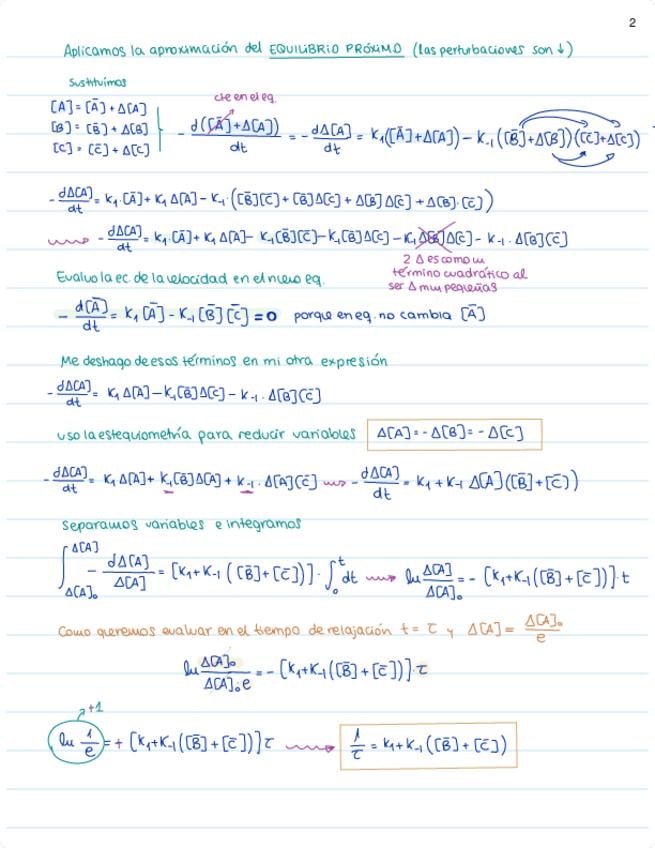 2
Aplicamos la aproximación del EQUILIBRIO PRÓXIMO (las perturbaciones son ↓)
Sustituimos
cte en el eq.
[A] = [Ā] + Δ[A]
[B] = [B̄] + Δ[B]
[C] = [C̄] + Δ[C]
- d([Ā]+Δ[A])/dt = - dΔ[A]/dt = K₁([Ā]+Δ[A]) - K₋₁([B̄]+Δ[B])([C̄]+Δ[C])
- dΔ[A]/dt = K₁·[Ā] + K₁Δ[A] - K₋₁·([B̄][C̄] + [B̄]Δ[C] + Δ[B]Δ[C] + Δ[B]·[C̄])
- dΔ[A]/dt = K₁·[Ā] + K₁Δ[A] - K₋₁[B̄][C̄] - K₋₁[B̄]Δ[C] - K₋₁Δ[B]Δ[C] - K₋₁·Δ[B][C̄]
2 Δ es como un
término cuadrático al
ser Δ muy pequeñas
Evaluo la ec. de la velocidad en el nuevo eq.
- d[Ā]/dt = K₁[Ā] - K₋₁[B̄][C̄] = 0 porque en eq. no cambia [Ā]
Me deshago de esos términos en mi otra expresión
- dΔ[A]/dt = K₁Δ[A] - K₋₁[B̄]Δ[C] - K₋₁·Δ[B][C̄]
uso la estequiometría para reducir variables Δ[A] = -Δ[B] = -Δ[C]
- dΔ[A]/dt = K₁Δ[A] + K₋₁[B̄]Δ[A] + K₋₁·Δ[A][C̄] → - dΔ[A]/dt = K₁ + K₋₁Δ[A]([B̄]+[C̄])
Separamos variables e integramos
∫_{Δ[A]₀}^{Δ[A]} - dΔ[A]/Δ[A] = [K₁+K₋₁([B̄]+[C̄])]·∫₀ᵗ dt → ln Δ[A]/Δ[A]₀ = - [K₁+K₋₁([B̄]+[C̄])]·t
Como queremos evaluar en el tiempo de relajación t = τ y Δ[A] = Δ[A]₀/e
ln Δ[A]₀/Δ[A]₀e = - [K₁+K₋₁([B̄]+[C̄])]·τ
+1
ln 1/e = + [K₁+K₋₁([B̄]+[C̄])]τ → 1/τ = K₁+K₋₁([B̄]+[C̄])